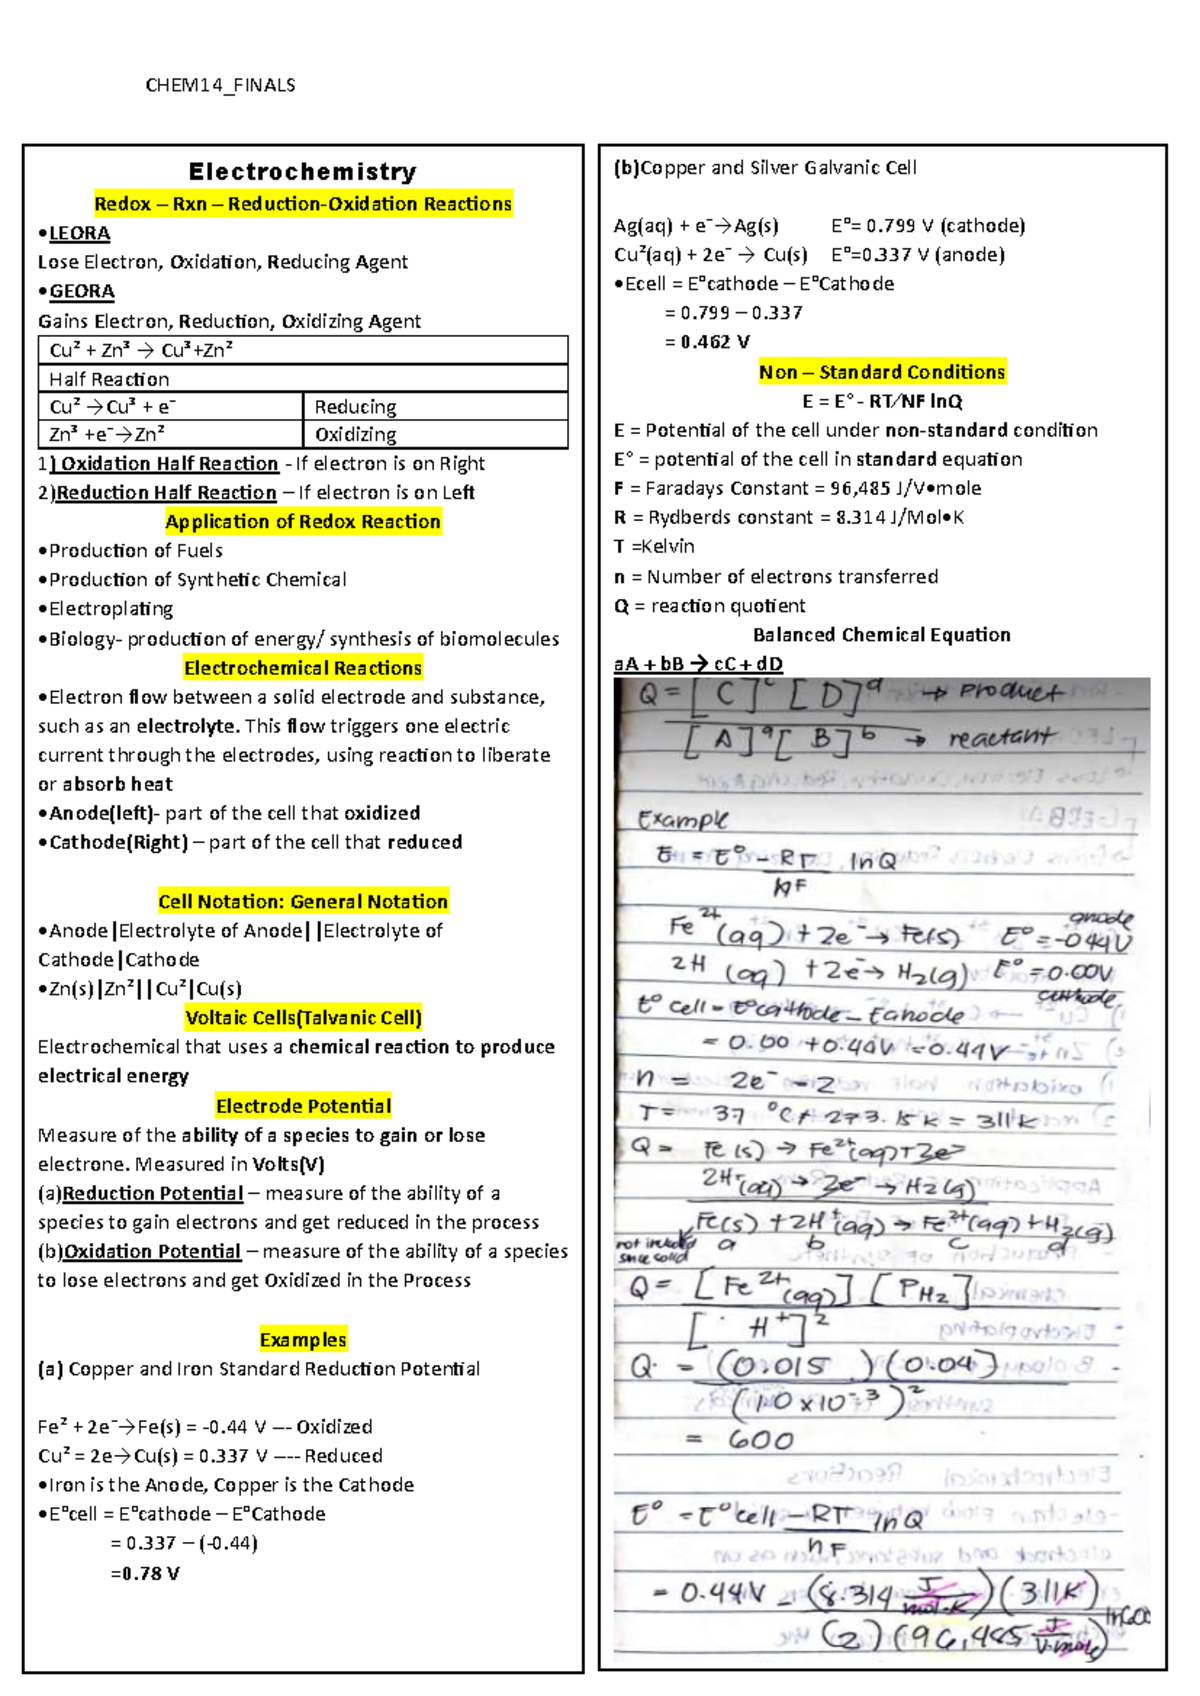 CHEM14_FINALS
Electrochemistry
Redox – Rxn – Reduction-Oxidation Reactions
•LEORA
Lose Electron, Oxidation, Reducing Agent
•GEORA
Gains Electron, Reduction, Oxidizing Agent
Cu² + Zn³ → Cu³+Zn²
Half Reaction
Cu² →Cu³ + e⁻ Reducing
Zn³ +e⁻→Zn² Oxidizing
1) Oxidation Half Reaction - If electron is on Right
2)Reduction Half Reaction – If electron is on Left
Application of Redox Reaction
•Production of Fuels
•Production of Synthetic Chemical
•Electroplating
•Biology- production of energy/ synthesis of biomolecules
Electrochemical Reactions
•Electron flow between a solid electrode and substance,
such as an electrolyte. This flow triggers one electric
current through the electrodes, using reaction to liberate
or absorb heat
•Anode(left)- part of the cell that oxidized
•Cathode(Right) – part of the cell that reduced
Cell Notation: General Notation
•Anode|Electrolyte of Anode||Electrolyte of
Cathode|Cathode
•Zn(s)|Zn²||Cu²|Cu(s)
Voltaic Cells(Talvanic Cell)
Electrochemical that uses a chemical reaction to produce
electrical energy
Electrode Potential
Measure of the ability of a species to gain or lose
electrone. Measured in Volts(V)
(a)Reduction Potential – measure of the ability of a
species to gain electrons and get reduced in the process
(b)Oxidation Potential – measure of the ability of a species
to lose electrons and get Oxidized in the Process
Examples
(a) Copper and Iron Standard Reduction Potential
Fe² + 2e⁻→Fe(s) = -0.44 V --- Oxidized
Cu² = 2e→Cu(s) = 0.337 V ---- Reduced
•Iron is the Anode, Copper is the Cathode
•E°cell = E°cathode – E°Cathode
= 0.337 – (-0.44)
=0.78 V
(b)Copper and Silver Galvanic Cell
Ag(aq) + e⁻→Ag(s) E°= 0.799 V (cathode)
Cu²(aq) + 2e⁻ → Cu(s) E°=0.337 V (anode)
•Ecell = E°cathode – E°Cathode
= 0.799 – 0.337
= 0.462 V
Non – Standard Conditions
E = E° - RT/NF lnQ
E = Potential of the cell under non-standard condition
E° = potential of the cell in standard equation
F = Faradays Constant = 96,485 J/V•mole
R = Rydberds constant = 8.314 J/Mol•K
T =Kelvin
n = Number of electrons transferred
Q = reaction quotient
Balanced Chemical Equation
aA + bB → cC + dD
Q = [ C ]ᶜ [ D ]ᵈ → Product
[ A ]ᵃ [ B ]ᵇ → reactant
Example
E = E° - RT lnQ
nF
anode
Fe²⁺(aq) + 2e⁻ → Fe(s) E° = -0.44V
2H (aq) + 2e⁻ → H₂(g) E° = 0.00V
cathode
E° cell = E°cathode - Eanode
= 0.00 + 0.44V = 0.44V
n = 2e⁻ - 2
T = 37 °C + 273.15 K = 311K
Q = Fe (s) → Fe²⁺(aq) + 2e⁻
2H⁺(aq) → 2e⁻ → H₂(g)
Fe(s) + 2H⁺(aq) → Fe²⁺(aq) + H₂(g)
not included since solid a b c d
Q = [Fe²⁺(aq)] [PH₂]
[ H⁺]²
Q = (0.015 )(0.04)
(1.0 x10⁻³)²
= 600
E° = E°cell - RT ln Q
nF
= 0.44V - (8.314 J/mol·K)(311K)
(2)(96,485 J/V·mole) ln600